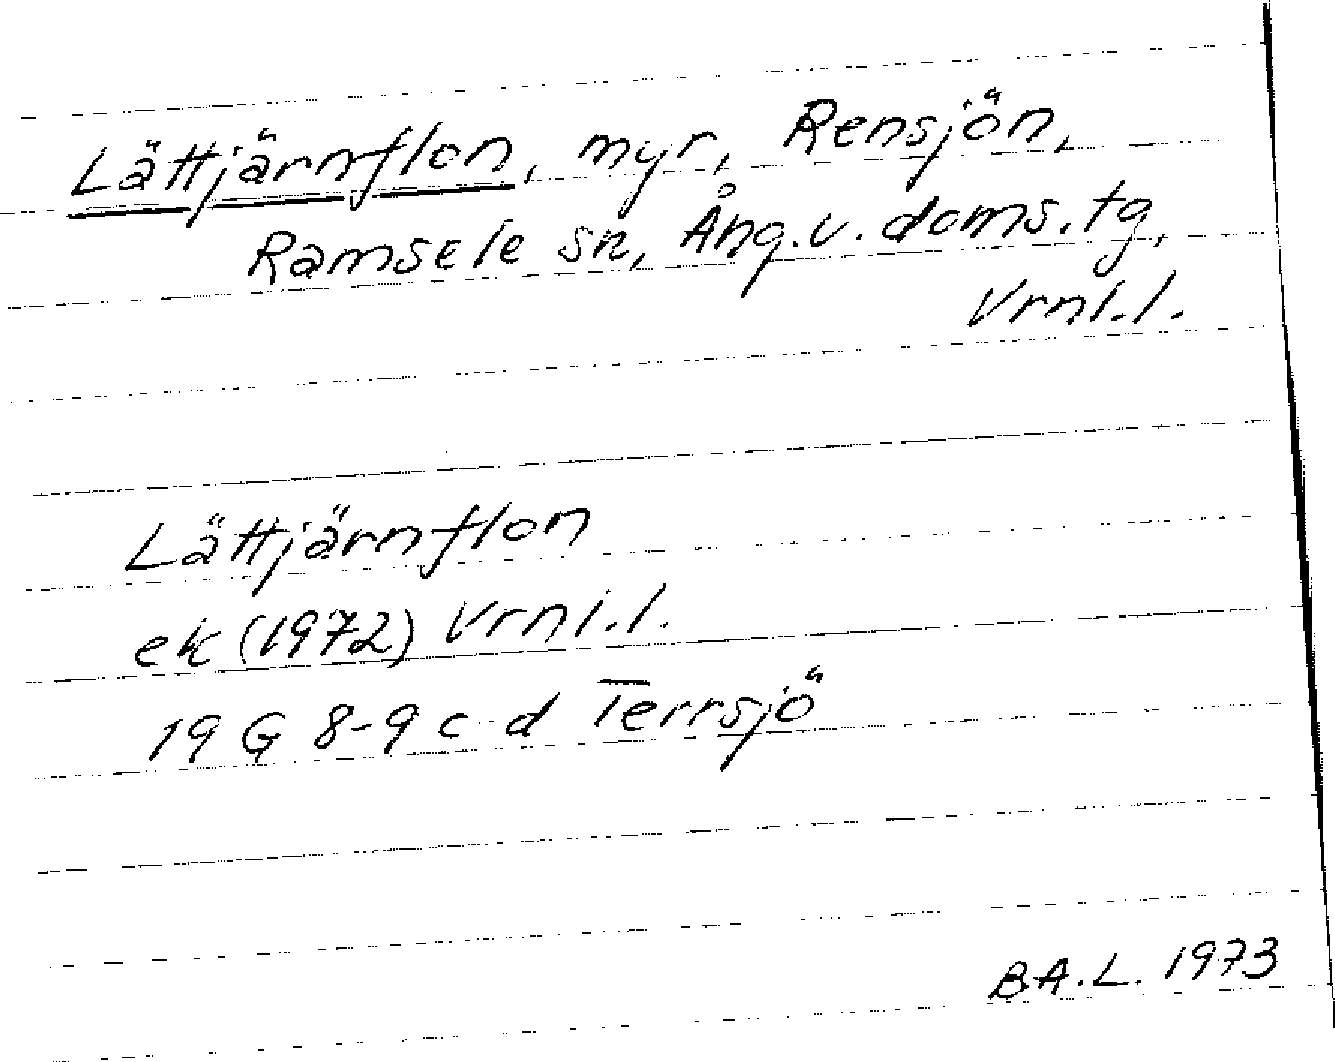 Lättjärnflon, myr, Rensjön,
Ramsele sn, Ång.v.doms.tg,
Vrnl.l.
Lättjärnflon
ek (1972) Vrnl.l.
19 G 8-9 c-d Terrsjö
B.A.L. 1973